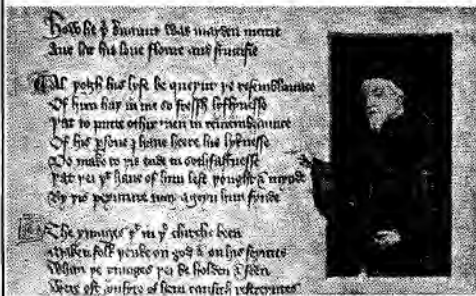 How he þ seruaunt was mayden marie
And lat his loue floure and fructifie
Al þogh his lyfe be queynt þe resemblaunce
Of him haþ in me so fressh lyflynesse
Þat to putte othir men in remembraunce
Of his psone I haue heere his lyknesse
Do make to þis ende in sothfastnesse
Þat þei þt haue of him left þought & mynde
By þis peynture may ageyn him fynde
The ymages þt in þe chirche been
Maken folk þenke on god & on his seyntes
Whan þe ymages þei be holden & seen
Were oft vnsyte of hem causith restreyntes